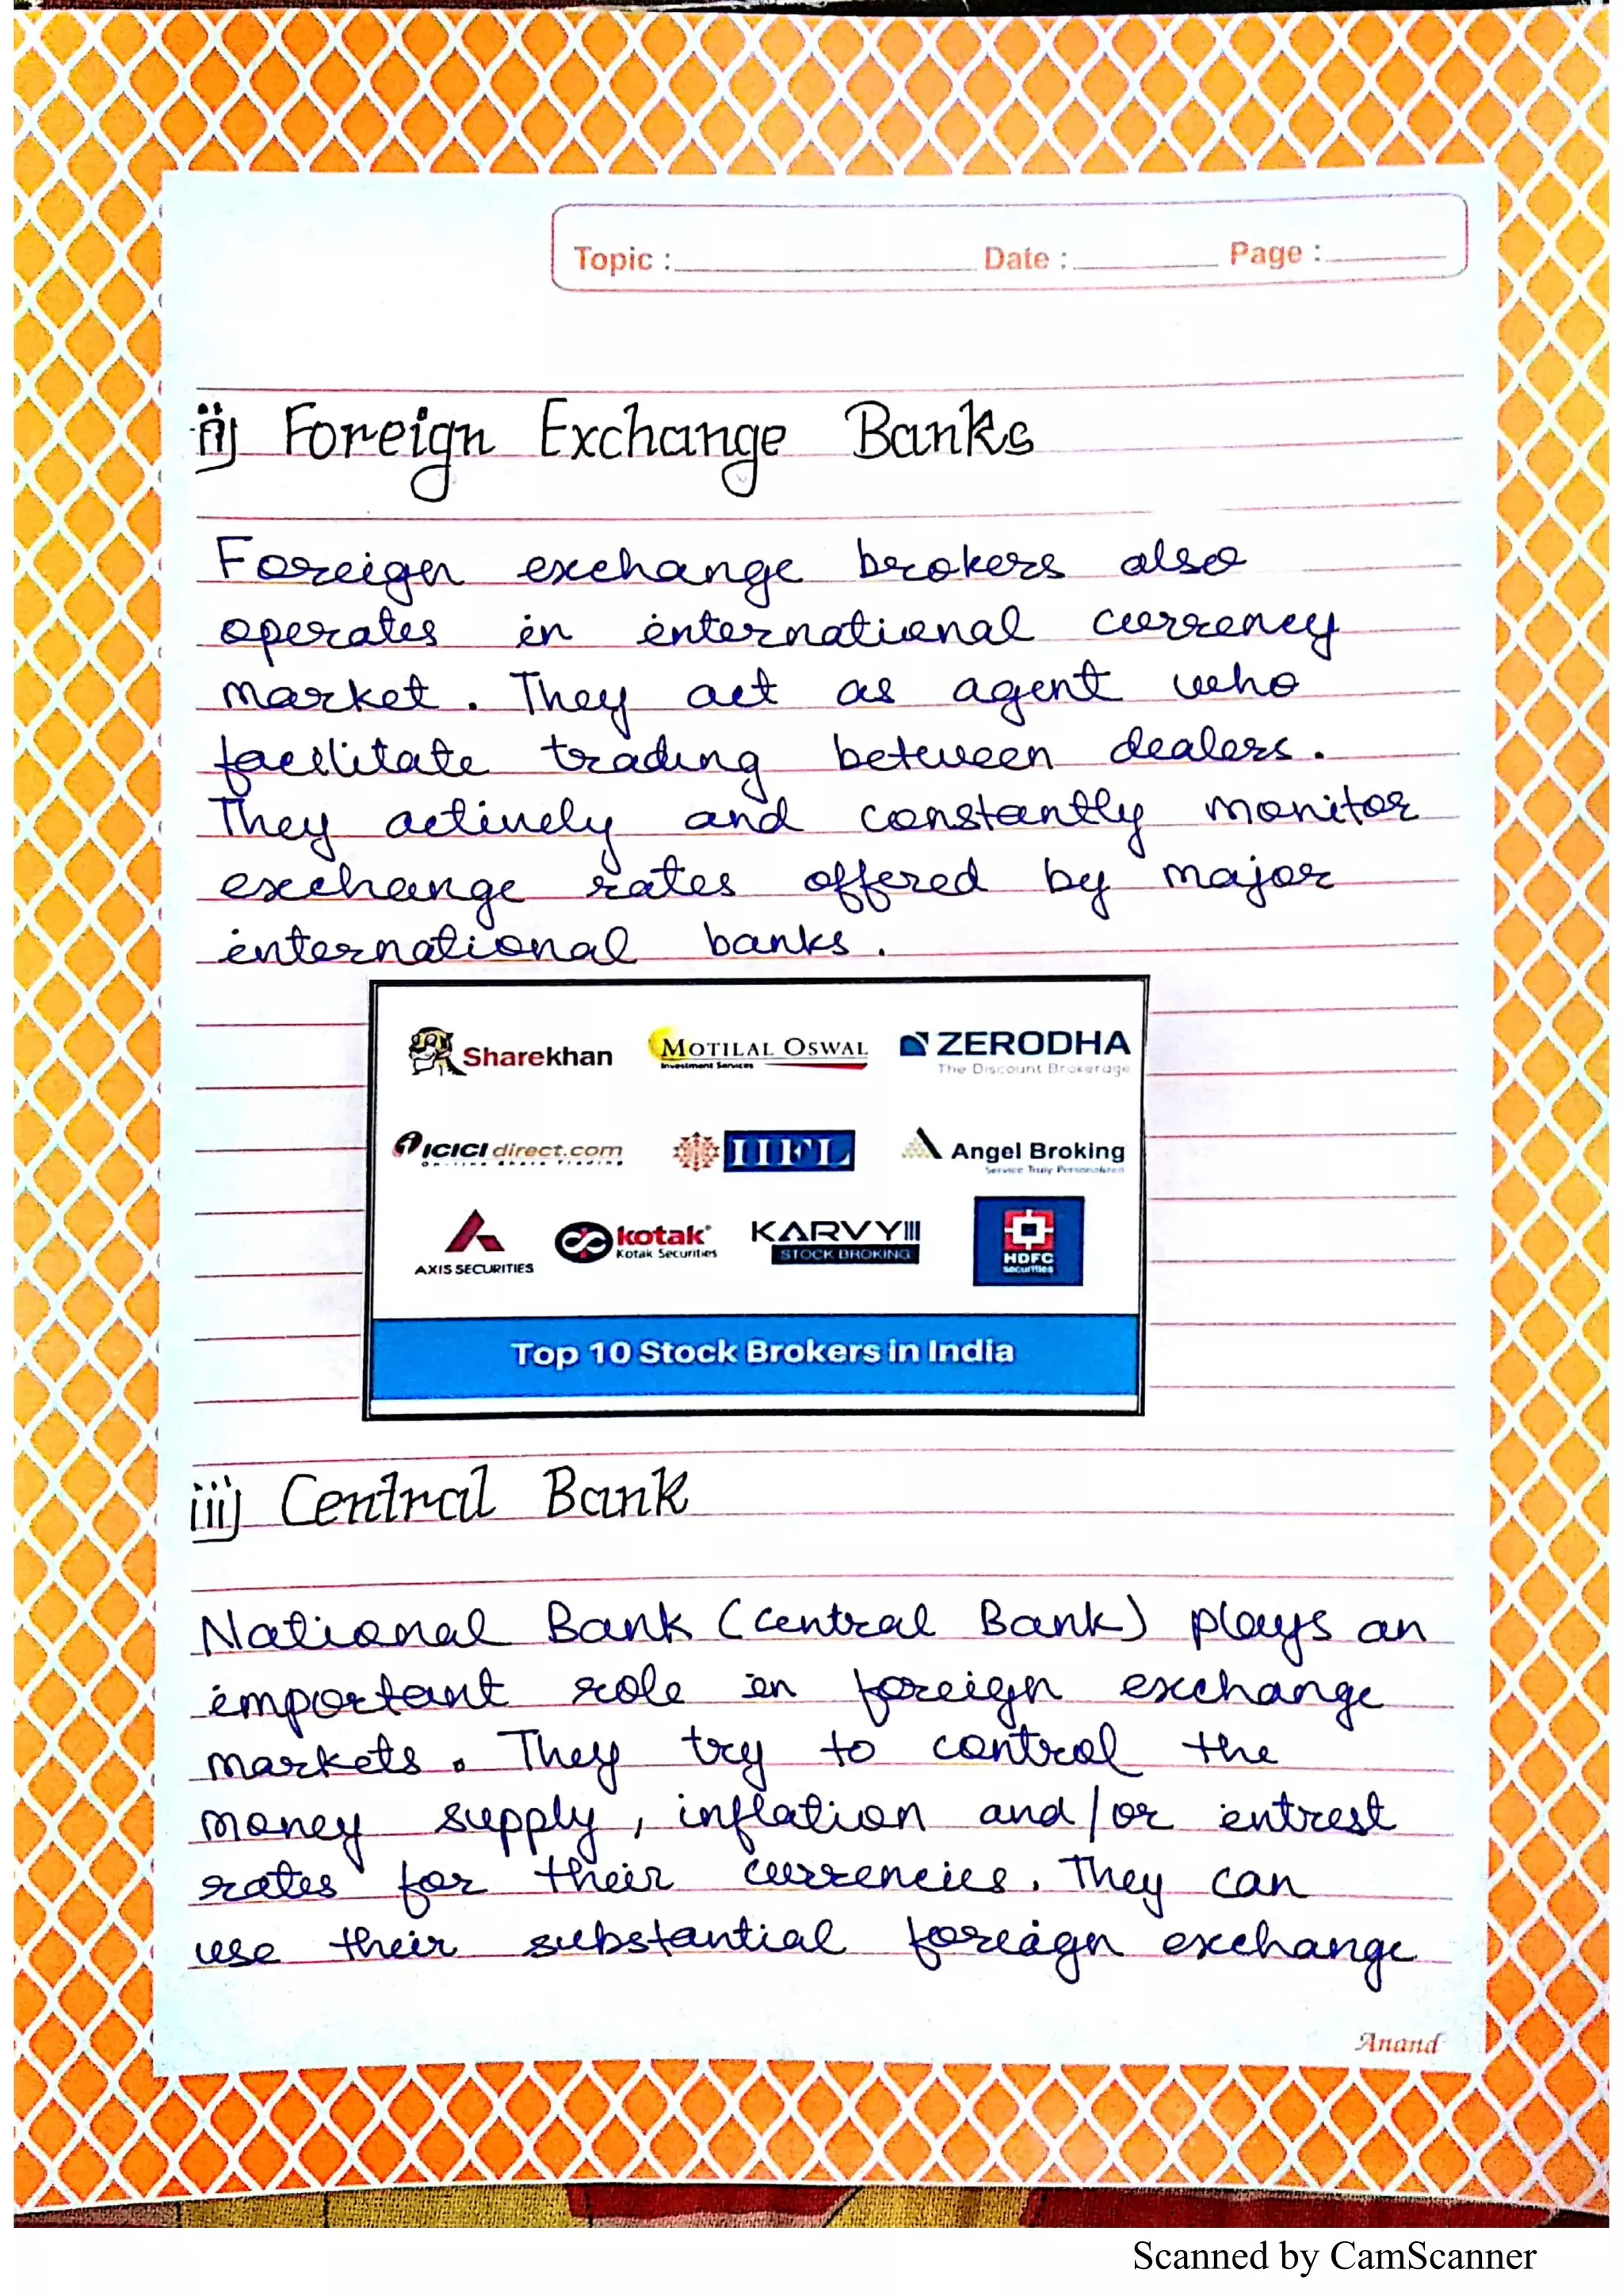 Topic : Date : Page :
ii) Foreign Exchange Banks
Foreign exchange brokers also
operates in international currency
market. They act as agent who
facilitate trading between dealers.
They actively and constantly monitor
exchange rates offered by major
international banks.
Sharekhan MOTILAL OSWAL ZERODHA
Investment Services The Discount Brokerage
ICICI direct.com IIFL Angel Broking
On-line Share Trading Service Truly Personalized
AXIS SECURITIES kotak Kotak Securities KARVY STOCK BROKING HDFC securities
Top 10 Stock Brokers in India
iii) Central Bank
National Bank (Central Bank) plays an
important role in foreign exchange
markets. They try to control the
money supply, inflation and/or intrest
rates for their currencies. They can
use their substantial foreign exchange
Anand
Scanned by CamScanner